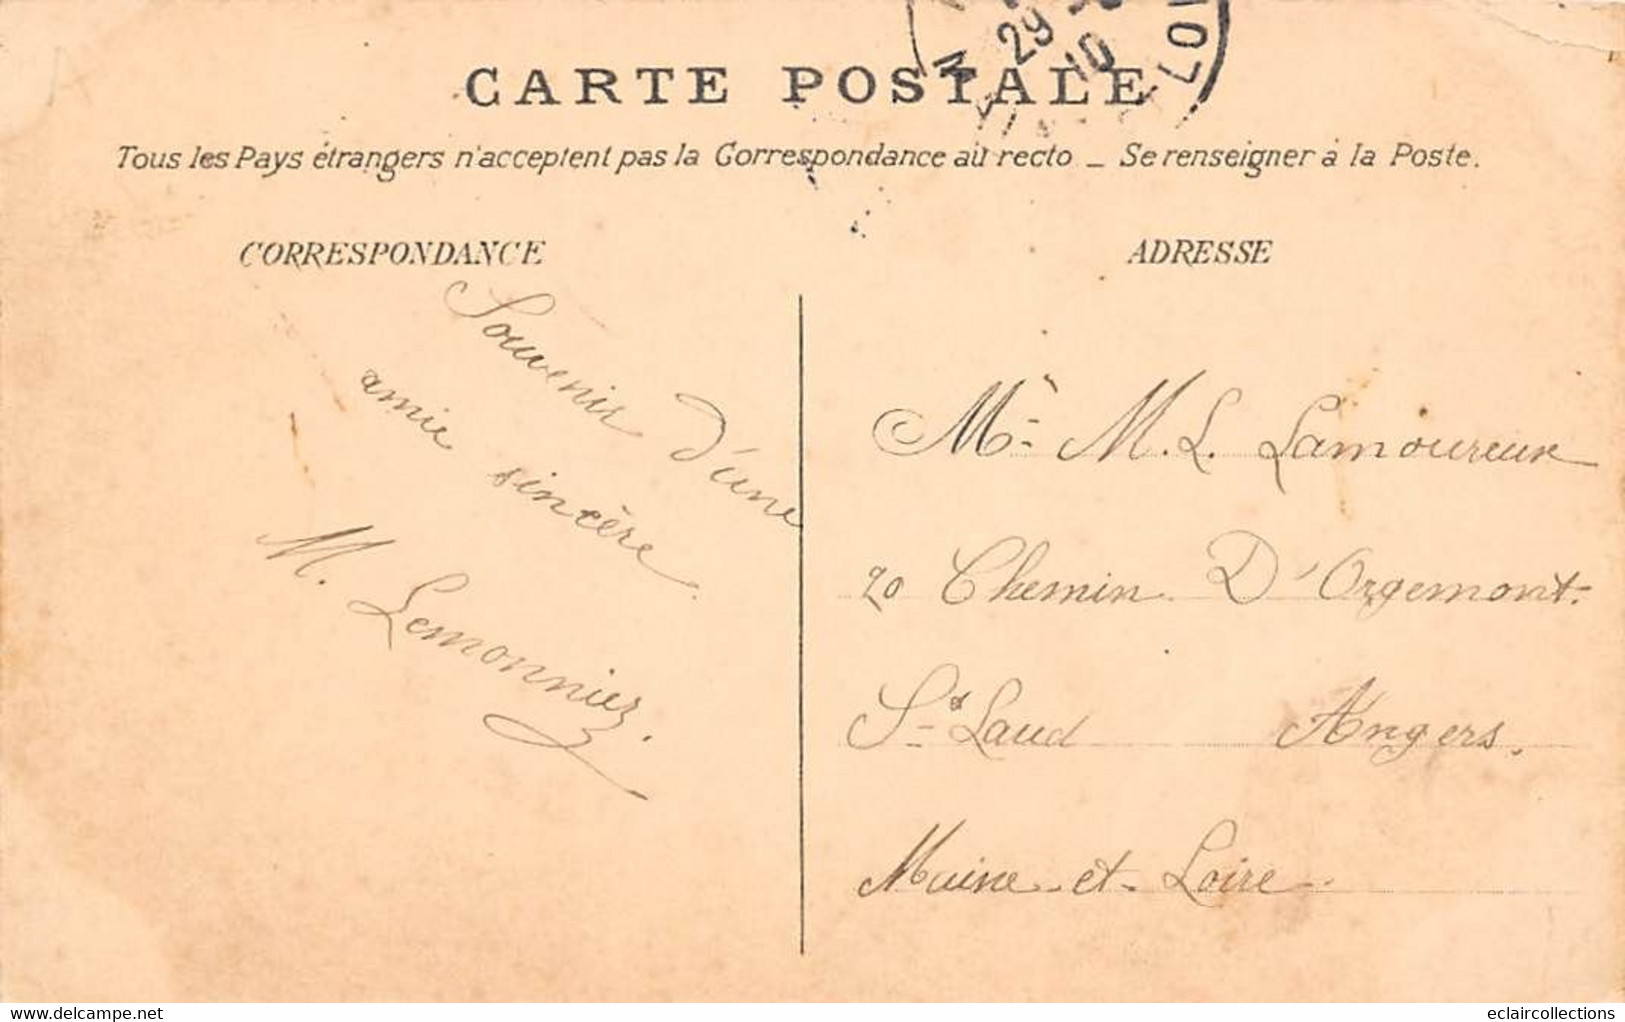 29
10
LOI
CARTE POSTALE
Tous les Pays étrangers n'acceptent pas la Correspondance au recto _ Se renseigner à la Poste.
CORRESPONDANCE
Souvenir d'une
amie sincère
M. Lemonnier.
ADRESSE
M. L. Lamoureux
20 Chemin D'Orgemont.
St Laud Angers.
Maine-et-Loire
www.delcampe.net
eclaircollections